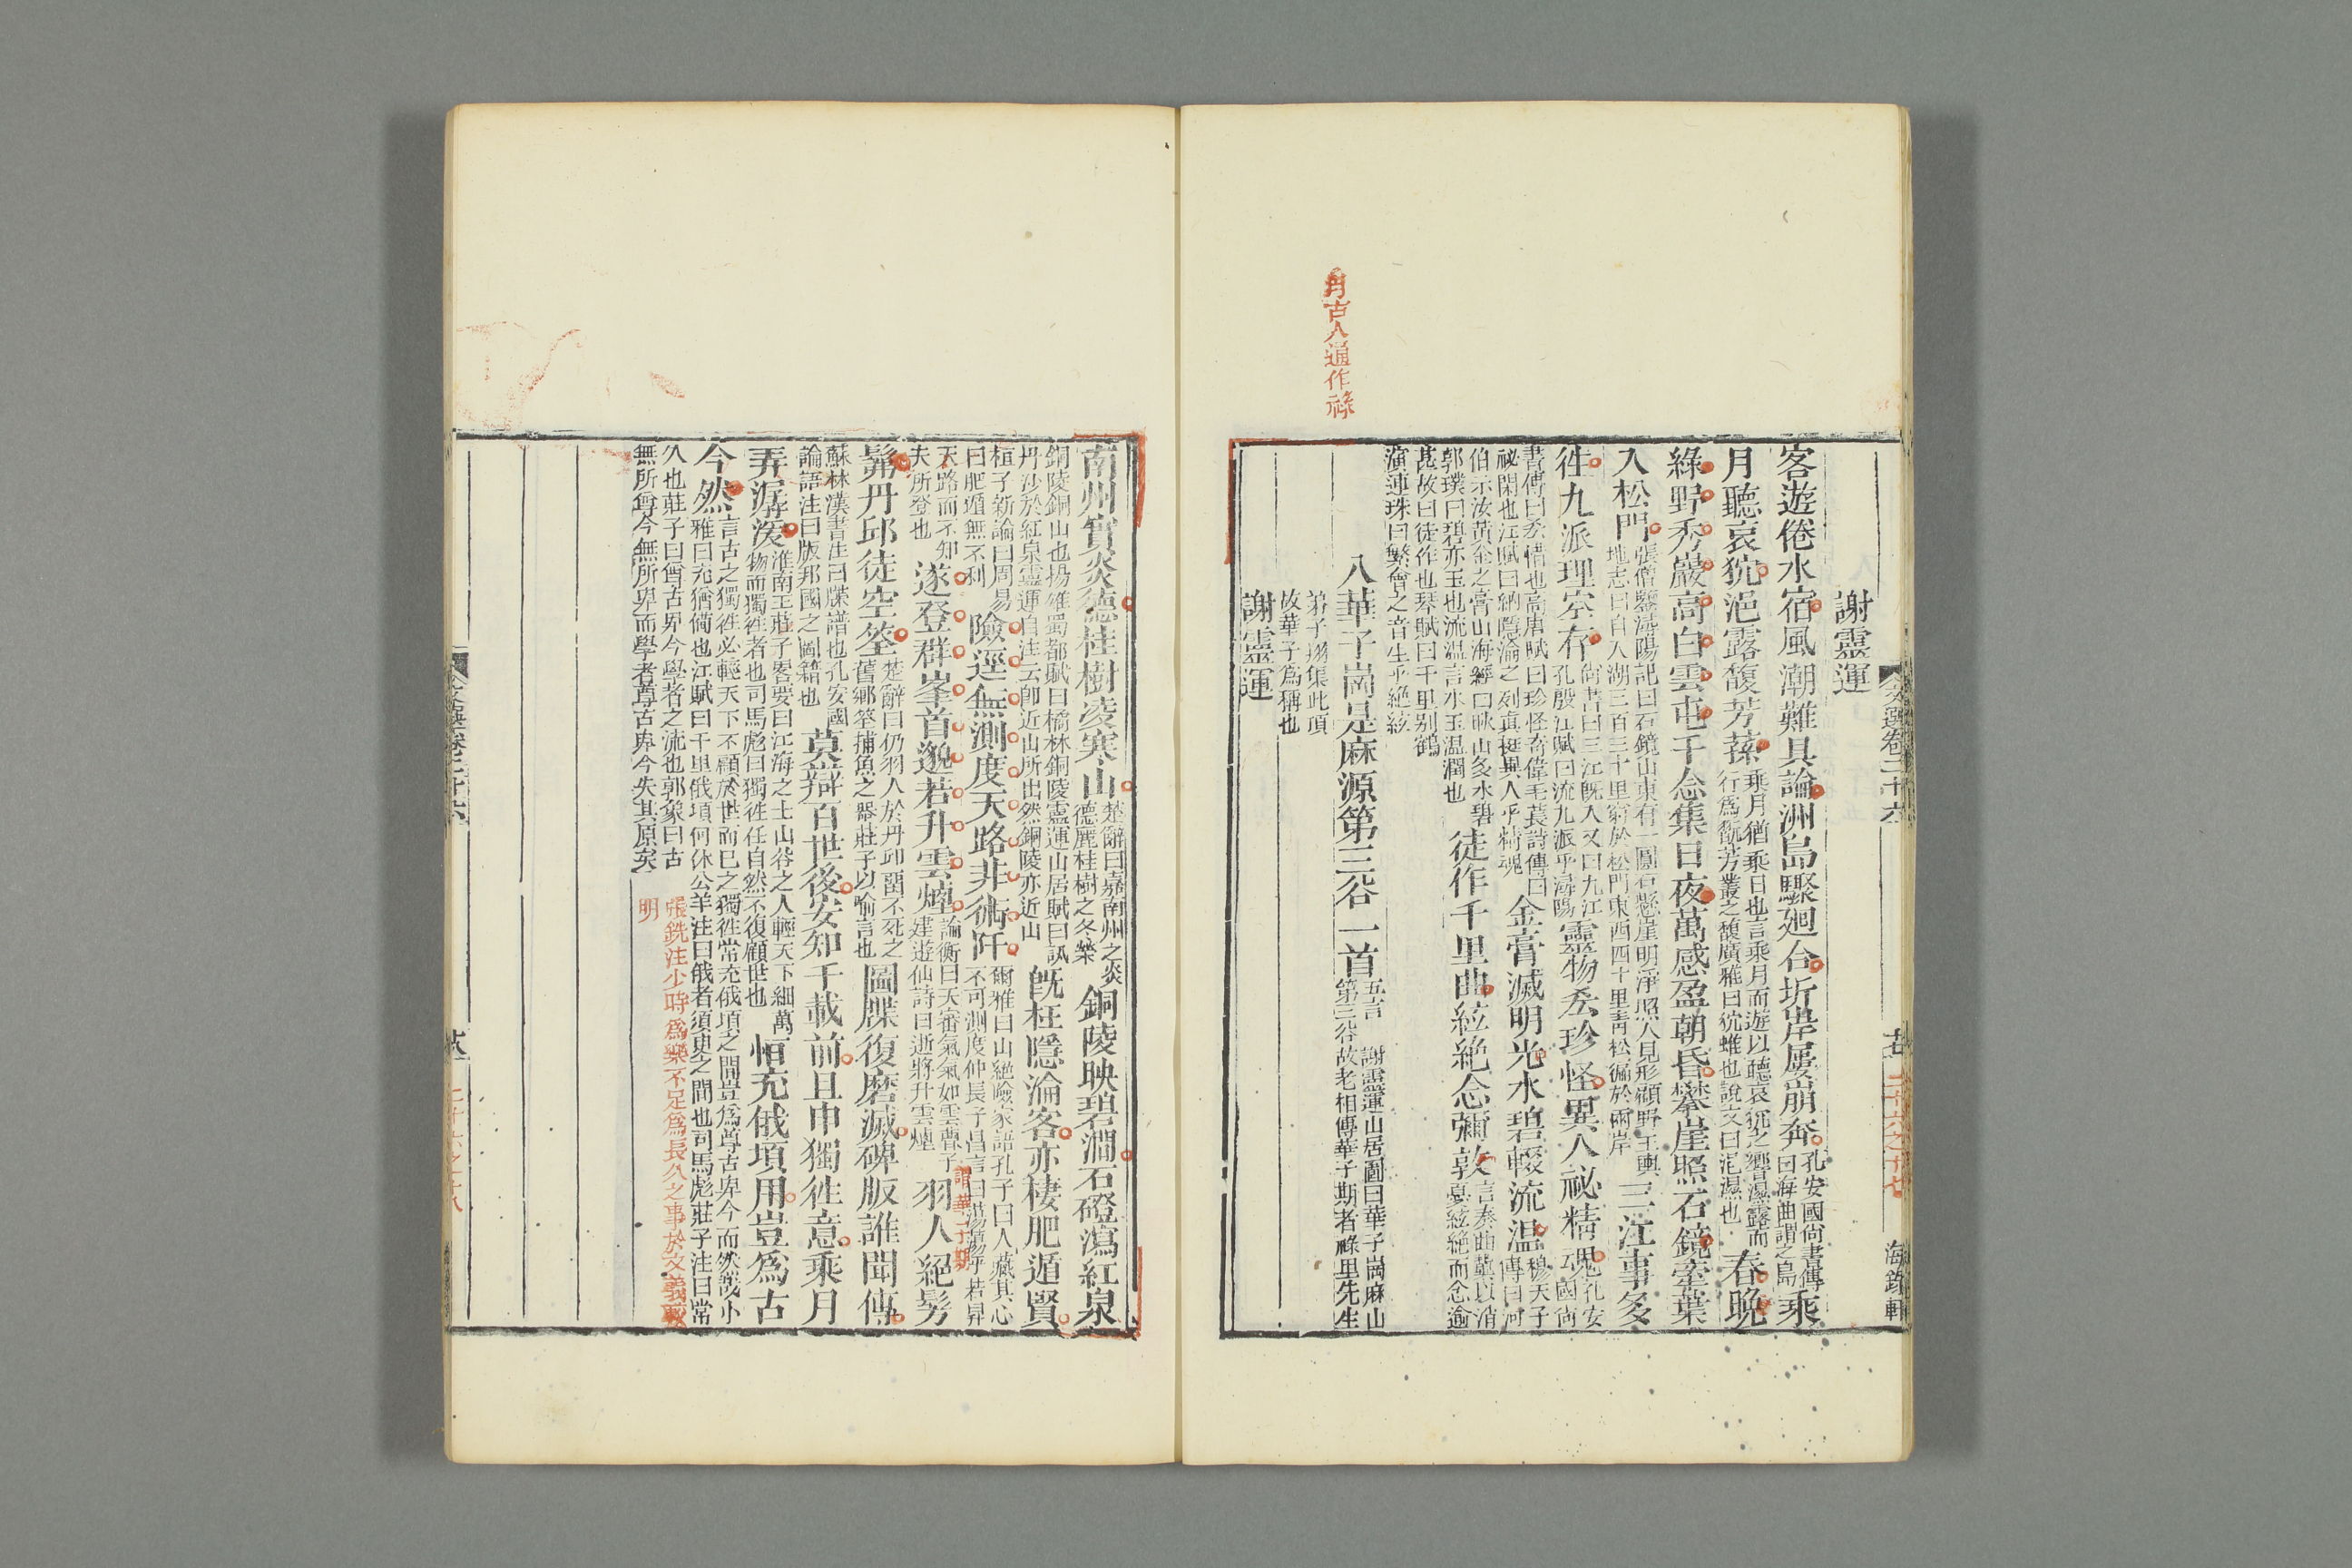 角古人通作祿
謝靈運
客遊倦水宿風潮難具論洲島驟廻合圻岸屢崩奔孔安國尚書傳曰海曲謂之島乘
月聽哀狖浥露馥芳蓀乘月猶乘日也言乘月而遊以聽哀狖之響濕露而行爲翫芳叢之馥廣雅曰狖蜼也說文曰浥濕也春晚
綠野秀巖高白雲屯千念集日夜萬感盈朝昏攀崖照石鏡牽葉
入松門張僧鑒潯陽記曰石鏡山東有一圓石懸崖明淨照人見形顧野王輿地志曰自入湖三百三十里窮於松門東西四十里青松徧於兩岸三江事多
往九派理空存尚書曰三江旣入又曰九江孔殷江賦曰流九派乎潯陽靈物吝珍怪異人祕精魂孔安國尚
書傳曰吝惜也高唐賦曰珍怪奇偉毛萇詩傳曰祕閉也江賦曰納隱淪之列眞挺異人乎精魂金膏滅明光水碧輟流温穆天子傳曰河
伯示汝黃金之膏山海經曰耿山多水碧郭璞曰碧亦玉也流温言水玉温潤也徒作千里曲絃絶念彌敦言奏曲冀以消憂絃絶而念逾
甚故曰徒作也琴賦曰千里别鶴演連珠曰繁會之音生乎絶絃
入華子崗是麻源第三谷一首五言謝靈運山居圖曰華子崗麻山第三谷故老相傳華子期者祿里先生
弟子翔集此頂故華子爲稱也
謝靈運
文選卷二十六
二十六之十七
海錄軒
南州實炎德桂樹凌寒山楚辭曰嘉南州之炎德麗桂樹之冬榮銅陵映碧澗石磴瀉紅泉
銅陵銅山也揚雄蜀都賦曰橘林銅陵靈運山居賦曰訊丹沙於紅泉靈運自注云卽近山所出然銅陵亦近山旣枉隱淪客亦棲肥遁賢
桓子新論曰周易曰肥遁無不利險逕無測度天路非術阡爾雅曰山絶險家語孔子曰人藏其心不可測度仲長子昌言曰蕩蕩乎若昇
天路而不知夫所登也遂登群峯首邈若升雲煙論衡曰天審氣氣如雲煙曹子建遊仙詩曰逝將升雲煙羽人絕髣
謂華子期
髴丹邱徒空筌楚辭曰仍羽人於丹邱留不死之舊鄉筌捕魚之器莊子以喻言也圖牒復磨滅碑版誰聞傳
蘇林漢書注曰牒譜也孔安國論語注曰版邦國之圖籍也莫辯百世後安知千載前且申獨往意乘月
弄潺湲淮南王莊子畧要曰江海之士山谷之人輕天下細萬物而獨往者也司馬彪曰獨往任自然不復顧世也恒充俄頃用豈爲古
今然言古之獨往必輕天下不顧於世而已之獨往常充俄頃之間豈爲尊古卑今而然哉小雅曰充猶備也江賦曰千里俄頃何休公羊注曰俄者須臾之間也司馬彪莊子注曰常
久也莊子曰尊古卑今學者之流也郭象曰古無所尊今無所卑而學者尊古卑今失其原矣
張銑注少時爲樂不足爲長久之事於文義較明
文選卷二十六
二十六之十八